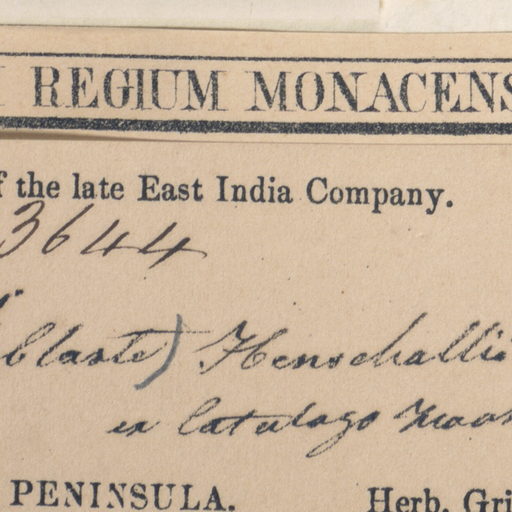 REGIUM MONACENS
f the late East India Company.
3644
blaste) Henschallii
ex Catalogo
PENINSULA.
Herb. Gri